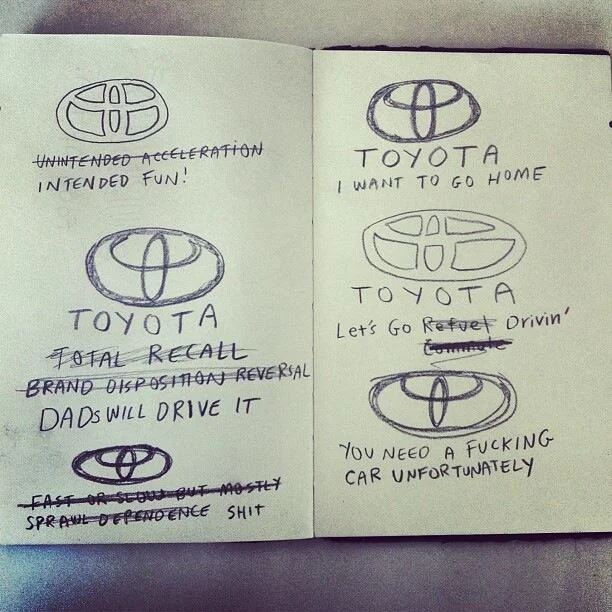 UNINTENDED ACCELERATION
INTENDED FUN!
TOYOTA
TOTAL RECALL
BRAND DISPOSITION REVERSAL
DADS WILL DRIVE IT
FAST OR SLOW BUT MOSTLY
SPRAWL DEPENDENCE SHIT
TOYOTA
I WANT TO GO HOME
TOYOTA
Let's Go Refuel Drivin'
Commute
YOU NEED A FUCKING
CAR UNFORTUNATELY